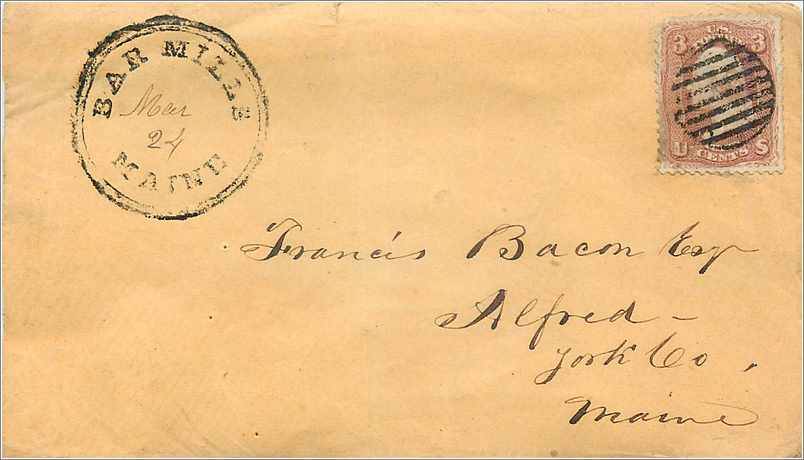 BAR MILLS
Mar
24
MAINE
3 3
U S
CENTS
Francis Bacon Esq
Alfred –
York Co,
Maine